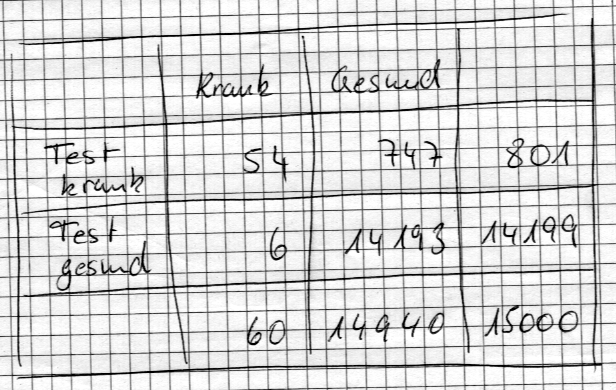 Krank Gesund
Test krank 54 747 801
Test gesund 6 14193 14199
60 14940 15000